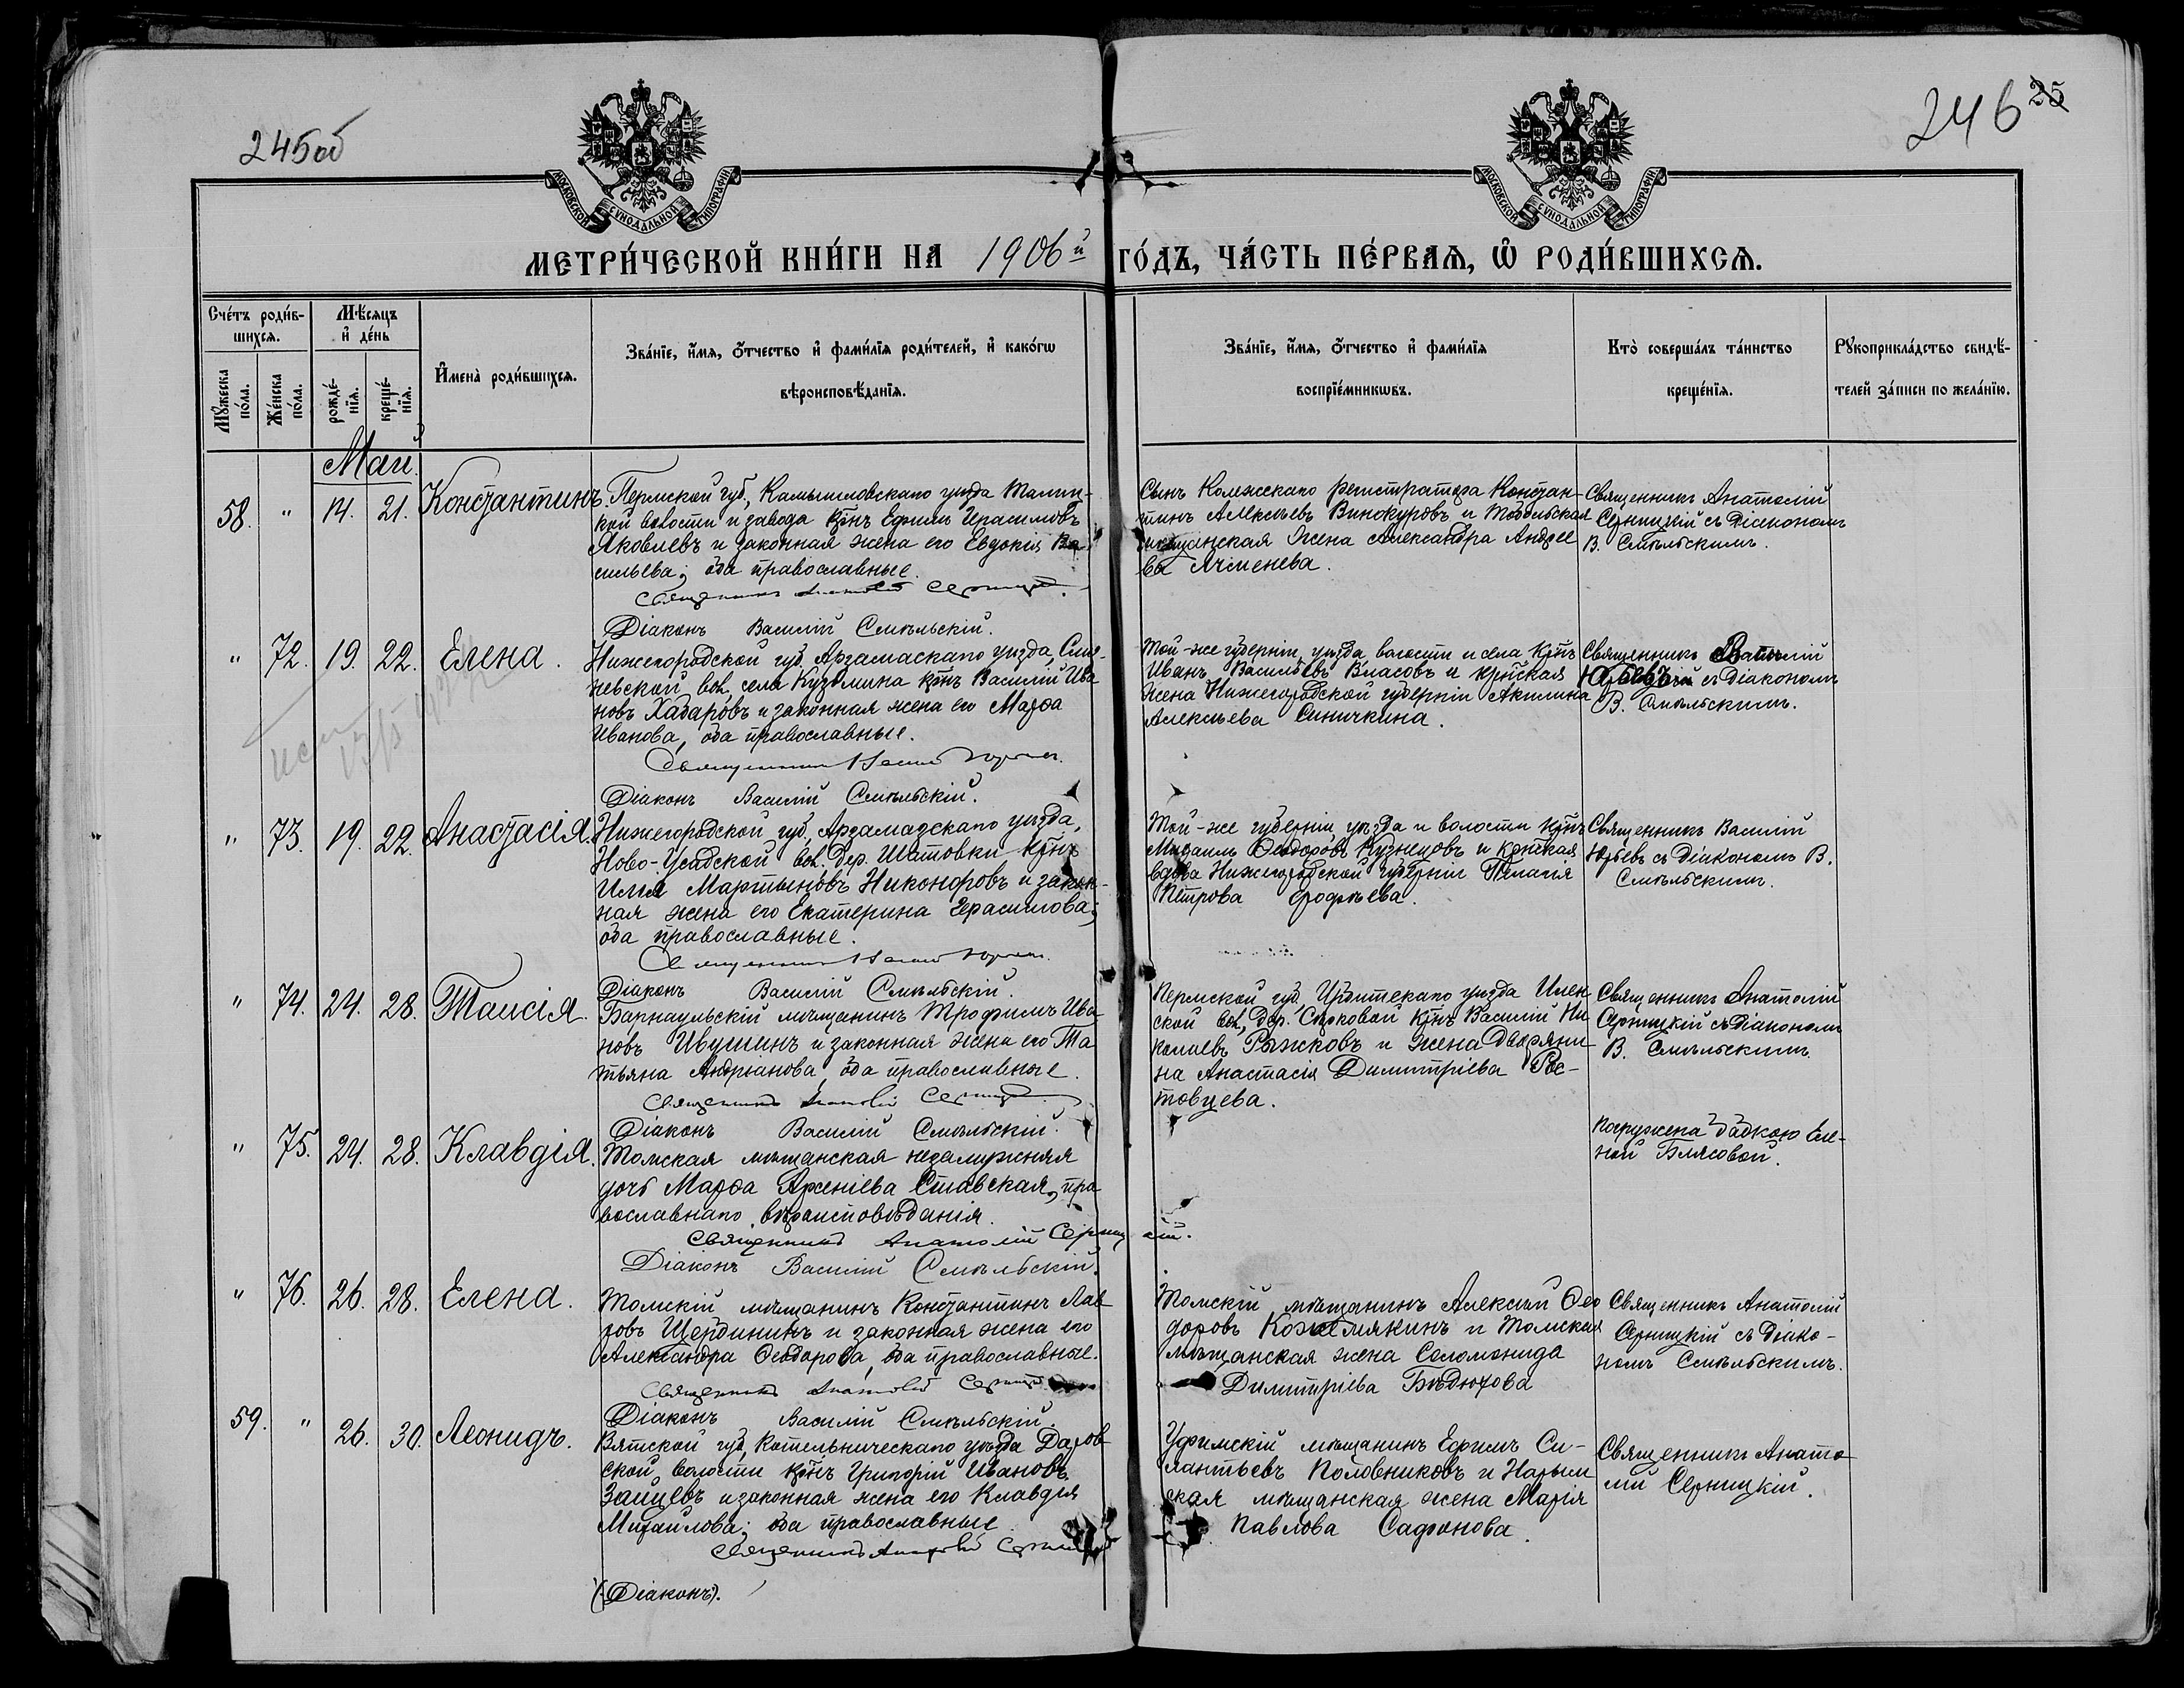 245об
246
25
МОСКОВСКОЙ СѴНОДАЛЬНОЙ ТИПОГРАФІИ
МОСКОВСКОЙ СѴНОДАЛЬНОЙ ТИПОГРАФІИ
МЕТРИ́ЧЕСКОЙ КНИ́ГИ НА 1906й ГО́ДЪ, ЧА́СТЬ ПЕ́РВАѦ, Ѡ҆ РОДИ́ВШИХСѦ.
Сче́тъ роди́в-
шихся.
Мѣ́сяцъ
и҆ де́нь
Мꙋ́жеска
по́ла.
Же́нска
по́ла.
рожде́-
нїѧ.
креще́-
нїѧ.
И҆мена̀ роди́вшихся.
Зва́нїе, и҆́мѧ, ѻ҆́тчество и҆ фами́лїѧ роди́телей, и҆ како́гѡ
вѣроисповѣ́данїѧ.
Зва́нїе, и҆́мѧ, ѻ҆́тчество и҆ фами́лїѧ
воспрїе́мникѡвъ.
Кто̀ соверша́лъ та́инство
креще́нїѧ.
Рꙋкоприкла́дство свидѣ́-
телей за́писи по жела́нїю.
Май.
58. " 14. 21. Константинъ.
Пермской губ., Камышловскаго уѣзда Талиц-
кой волости и завода крнъ Ефимъ Герасимовъ
Яковлевъ и законная жена его Евдокія Ва-
сильева; оба православные.
Священникъ Анатолій Серницкій.
Діаконъ Василій Смѣльскій.
Сынъ Коллежскаго регистратора Констан-
тинъ Алексѣевъ Винокуровъ и Тобольская
мѣщанская жена Александра Андрее
ва Ячменева.
Священникъ Анатолій
Серницкій съ Діакономъ
В. Смѣльскимъ.
" 72. 19. 22. Елена.
Нижегородской губ. Арзамаскаго уѣзда,
невской вол. села Кузьмина крнъ Василій Ива
новъ Хабаровъ и законная жена его Марѳа
Иванова, оба православные.
Священникъ Василій Юрьевъ.
Діаконъ Василій Смѣльскій.
Той-же губерніи, уѣзда, волости и села крнъ
Иванъ Васильевъ Власовъ и крнская
жена Нижегородской губерніи Акилина
Алексѣева Синичкина.
Священникъ Василій
Юрьевъ съ Діакономъ
В. Смѣльскимъ.
" 73. 19. 22. Анастасія.
Нижегородской губ. Арзамазскаго уѣзда,
Ново-Усадской вол. дер. Шатовки крнъ
Илія Мартыновъ Никоноровъ и закон-
ная жена его Екатерина Герасимова;
оба православные.
Священникъ Василій Юрьевъ.
Діаконъ Василій Смѣльскій.
Той-же губерніи уѣзда и волости крнъ
Михаилъ Ѳеодоровъ Кузнецовъ и крнская
вдова Нижегородской губерніи Пелагія
Петрова
Священникъ Василій
Юрьевъ съ Діакономъ В.
Смѣльскимъ.
" 74. 24. 28. Таисія.
Барнаульскій мѣщанинъ Трофимъ Ива
новъ Ивушинъ и законная жена его Та
тьяна Андріанова, оба православные.
Священникъ Анатолій Серницкій.
Діаконъ Василій Смѣльскій.
Пермской губ. Ирбитскаго уѣзда Илен
ской вол., дер. крнъ Василій Ни
колаевъ Рыжковъ и жена дворяни-
на Анастасія Димитріева Рос-
товцева.
Священникъ Анатолій
Серницкій съ Діакономъ
В. Смѣльскимъ.
" 75. 24. 28. Клавдія.
Томская мѣщанская незамужняя
дочь Марѳа Арсеніева Ставская, пра
вославнаго вѣроисповѣданія.
Священникъ Анатолій Серницкій.
Діаконъ Василій Смѣльскій.
погружена бабкою Еле-
ной Блясовой.
" 76. 26. 28. Елена.
Томскій мѣщанинъ Константинъ Лав
ровъ Щербининъ и законная жена его
Александра Ѳеодорова, оба православные.
Священникъ Анатолій Серницкій
Діаконъ Василій Смѣльскій.
Томскій мѣщанинъ Алексѣй Ѳео
доровъ Кожемякинъ и Томская
мѣщанская жена Соломонида
Димитріева Бѣдюрова
Священникъ Анатолій
Серницкій съ Діако-
номъ Смѣльскимъ.
59. " 26. 30. Леонидъ.
Вятской губ. Котельническаго уѣзда Даров
ской волости крнъ Григорій Ивановъ
Зайцевъ и законная жена его Клавдія
Михайлова; оба православные.
Священникъ Анатолій Серницкій
(Діаконъ).
Уфимскій мѣщанинъ Ефимъ Си-
лантьевъ Половниковъ и Нарым
ская мѣщанская жена Марія
Павлова Сафонова.
Священникъ Анато
лій Серницкій.